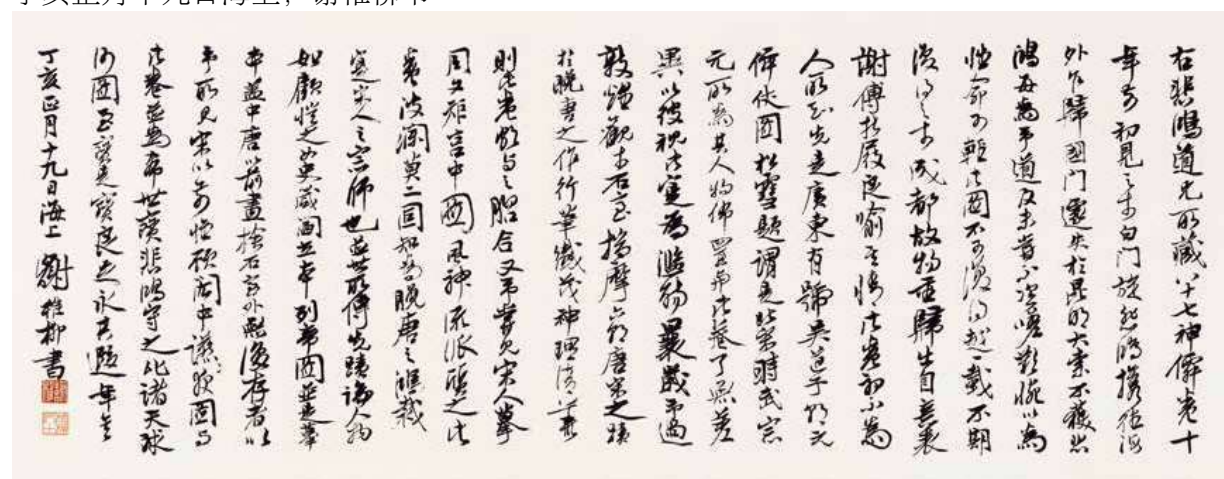 丁亥正月十九日海上,谢稚柳书
右悲鴻道兄所藏八十七神僊卷十
年前初見之於白門旋悲鴻攜往海
外乍歸國門遽失於昆明大索不獲悲
鴻每為予道及未嘗不咨嗟歎惋以為
性命可輕此圖不可復得越一載不期
復得之於成都故物重歸出自意表
謝傅折屐良喻其情此卷初不為
人所知先是廣東有號吳道子朝元
僊仗圖松雪題謂是北宋時武宗
元所為其人物佈置與此卷了無差
異以彼視此實為濫觴曩歲予過
敦煌觀於石室揣摩六朝唐宋之蹟
於晚唐之作行筆纖茂神理清華
則此卷頗與之脗合又予嘗見宋人摹
周文矩宮中圖風神流派質之此
卷波瀾莫二固知為晚唐之鴻裁
實宋人之宗師也並世所傳先蹟論人物
如顧愷之女史箴閻立本列帝圖並是摹
本蓋中唐以前畫捨石室外無復存者以
予所見宋以前惟顧閎中讌夜圖與
此卷並為希世寶悲鴻守之比諸天球
河圖至寶是寶良足永其遐年矣
丁亥正月十九日海上謝稚柳書